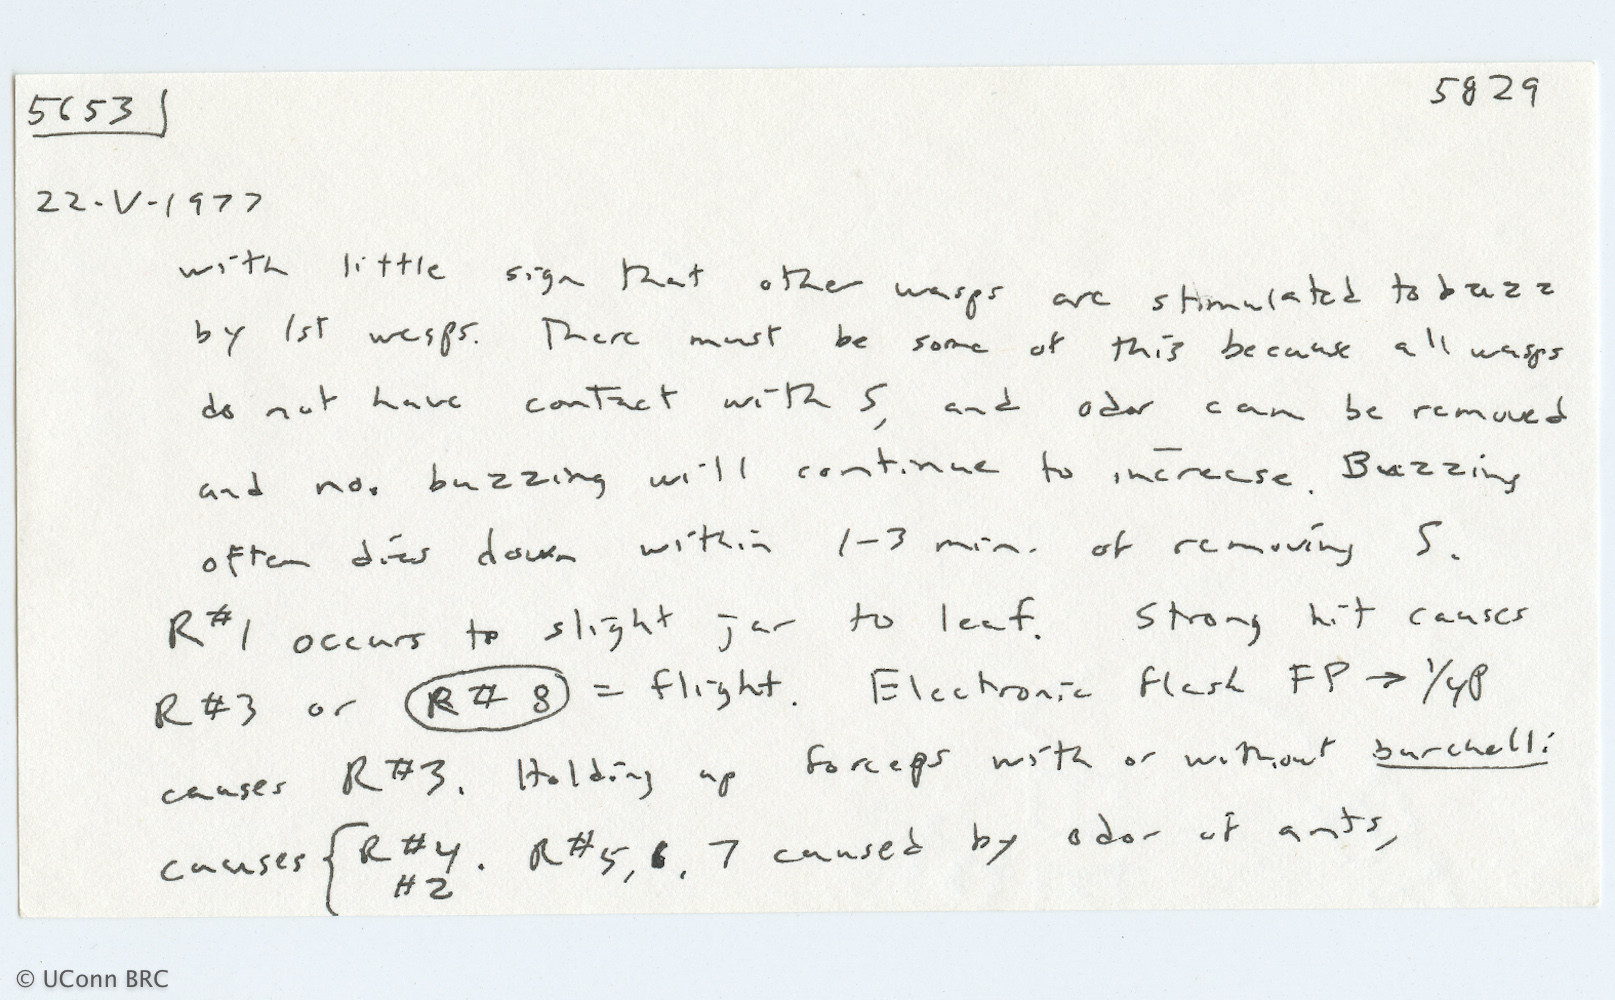 5653
5829
22-V-1977
with little sign that other wasps are stimulated to buzz
by 1st wasps. There must be some of this because all wasps
do not have contact with S, and odor can be removed
and no. buzzing will continue to increase. Buzzing
often dies down within 1-3 min. of removing S.
R#1 occurs to slight jar to leaf. Strong hit causes
R#3 or R#8 = flight. Electronic flash FP → 1/4P
causes R#3. Holding up forceps with or without burchelli
causes { R#4. R#5, 6, 7 caused by odor of ants,
#2
© UConn BRC